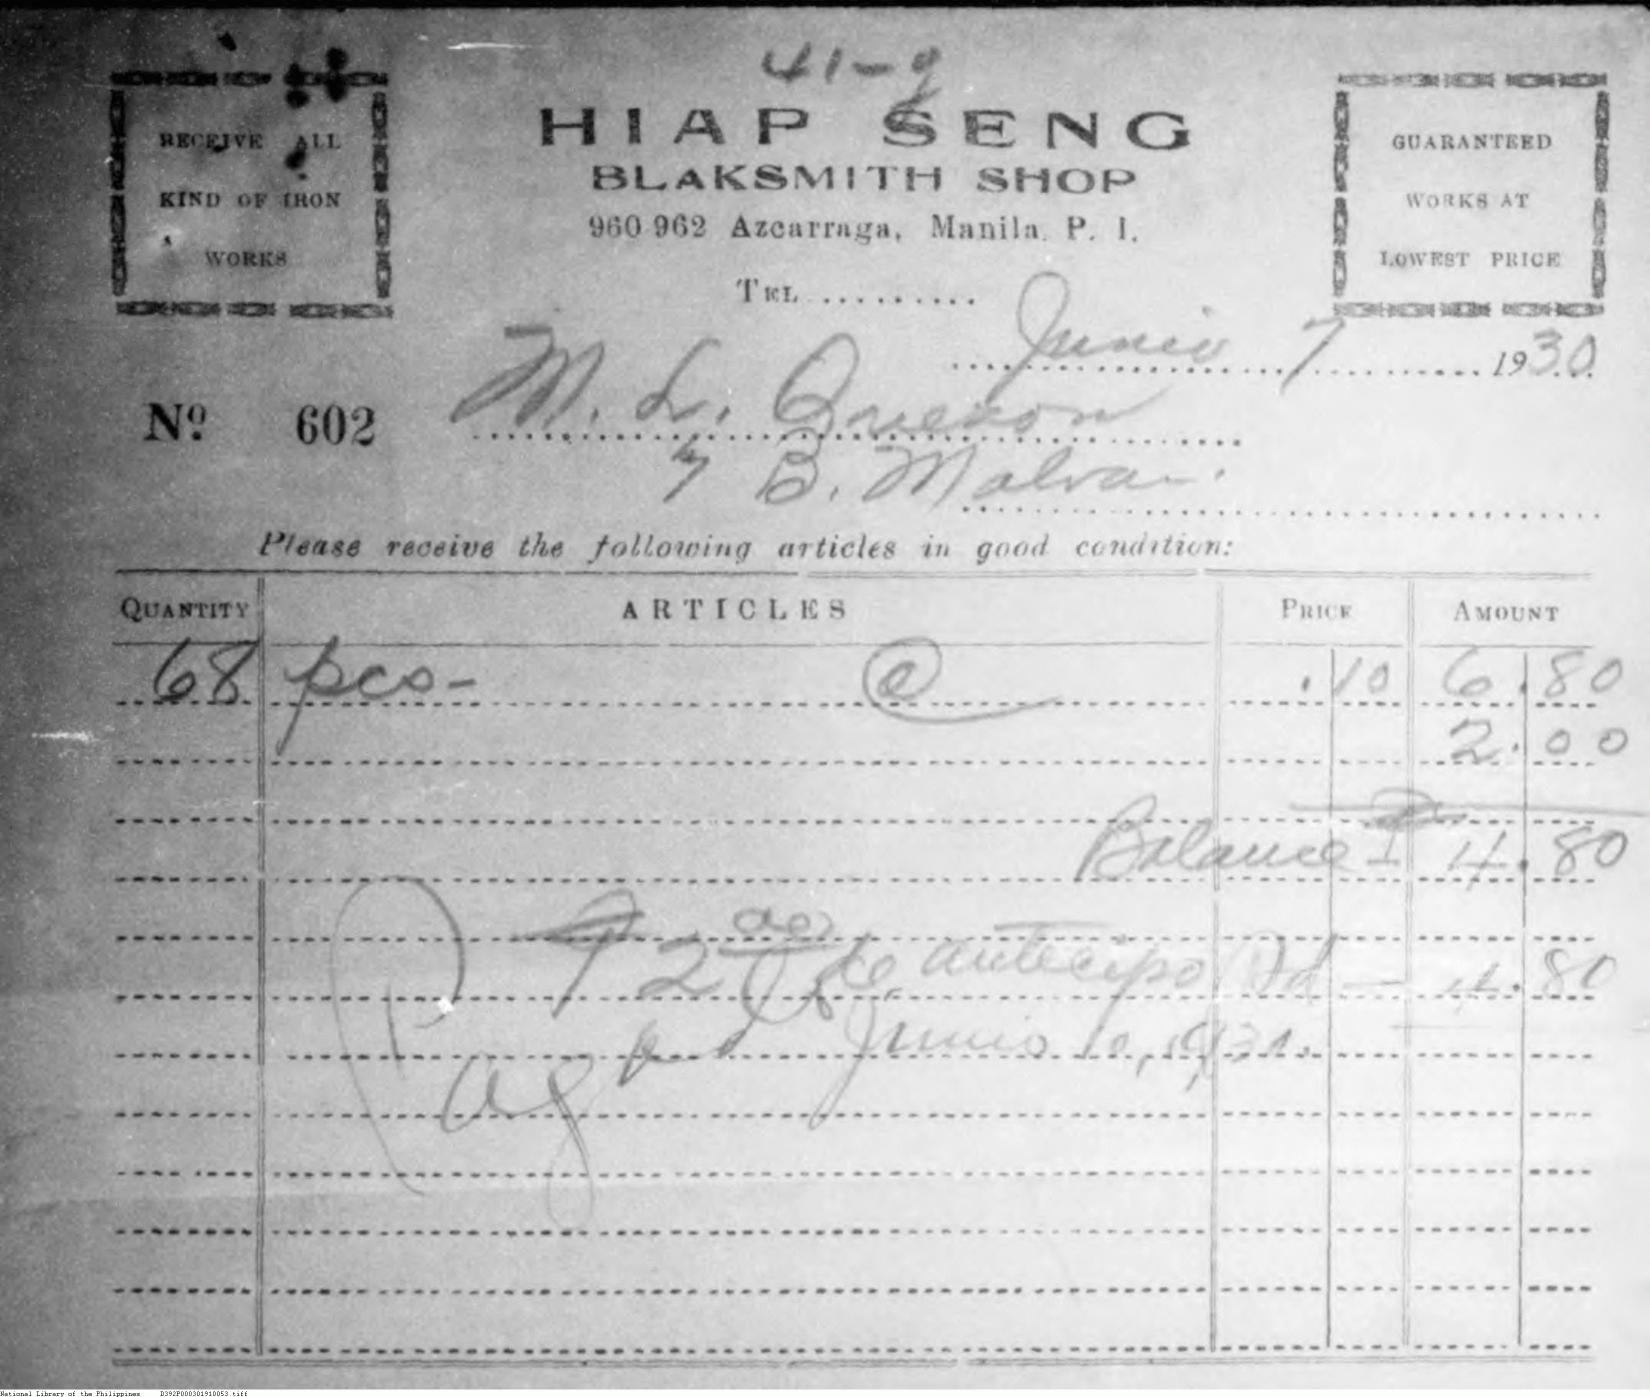 41-g
RECEIVE ALL
KIND OF IRON
WORKS
HIAP SENG
BLAKSMITH SHOP
960-962 Azcarraga, Manila, P. I.
TEL..........
GUARANTEED
WORKS AT
LOWEST PRICE
Junio 7 1930.
Nº 602 M. L. Quezon
B. Malvar.
Please receive the following articles in good condition:
QUANTITY ARTICLES PRICE AMOUNT
68 pcs- @ .10 6.80
2.00
Balance ₱ 4.80
₱ 2 00 de antecipo Pd — 4.80
Pagad Junio 10, 1930.
National Library of the Philippines D392P000301910053.tiff